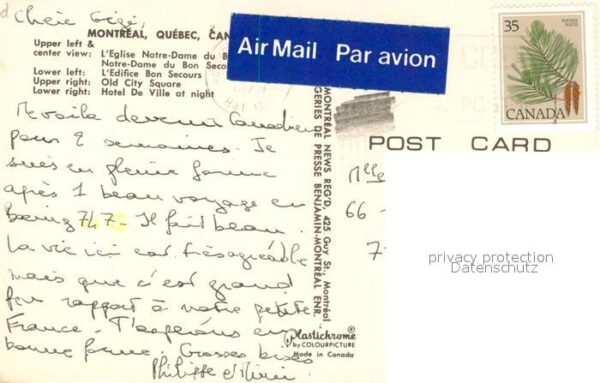 Chère Gigi,
MONTRÉAL, QUÉBEC, CAN
Upper left &
center view: L'Eglise Notre-Dame du B
Notre-Dame du Bon Seco
Lower left: L'Edifice Bon Secours
Upper right: Old City Square
Lower right: Hotel De Ville at night
Air Mail Par avion
35
POSTAGE
POSTES
CANADA
POST CARD
Me voilà devenu Canadien
pour 2 semaines. Je
suis en pleine forme
après 1 beau voyage en
Boeing 747. Il fait beau.
La vie ici est très agréable
mais que c'est grand
par rapport à notre petite
France. T'espérons en
bonne forme. Grosses bises
Philippe
MONTREAL NEWS REG'D, 425 Guy St., Montréal
GERIES DE PRESSE BENJAMIN-MONTRÉAL ENR.
Plastichrome®
by COLOURPICTURE
Made in Canada
Mlle
66 -
7
privacy protection
Datenschutz